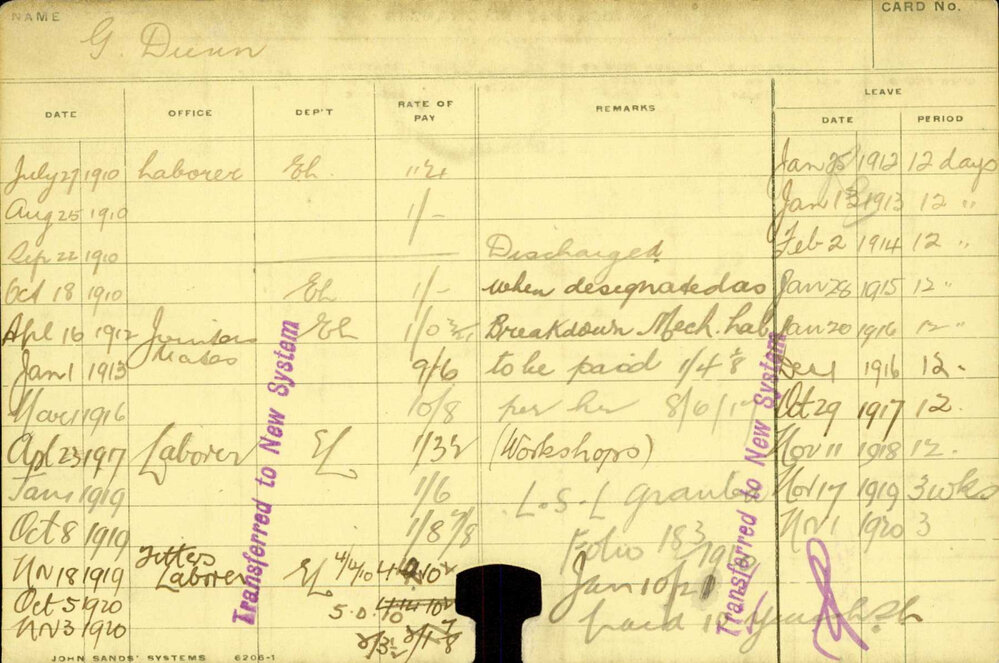 NAME
CARD No.
G. Dunn
LEAVE
DATE OFFICE DEP'T RATE OF PAY REMARKS DATE PERIOD
July 27 1910 Laborer Eh. Jan 25 1912 12 days
Aug 25 1910 1/- Jan 13 1913 12 "
Sep 22 1910 Discharged Feb 2 1914 12 "
Oct 18 1910 Eh 1/- when designated as Jan 28 1915 12 "
Apl 16 1912 Eh 1/0½ Breakdown Mech. Lab Jan 20 1916 12 "
Mates
Jan 1 1913 9/6 to be paid 1/4 Dec 1 1916 12.
Mar 1 1916 10/8 per hr 8/6/17 Oct 29 1917 12.
Apl 23 1917 Laborer EL 1/3½ (Workshops) Nov 11 1918 12.
Jan 1 1919 1/6 L.S.L Granted Nov 17 1919 3 wks
Oct 8 1919 1/8 7/8 Folio 183/19 Nv 1 1920 3
Fitters
Nv 18 1919 Laborer EL Jan 10/21
Oct 5 1920
Nv 3 1920 paid
Transferred to New System
Transferred to New System
JOHN SANDS' SYSTEMS 6206-1